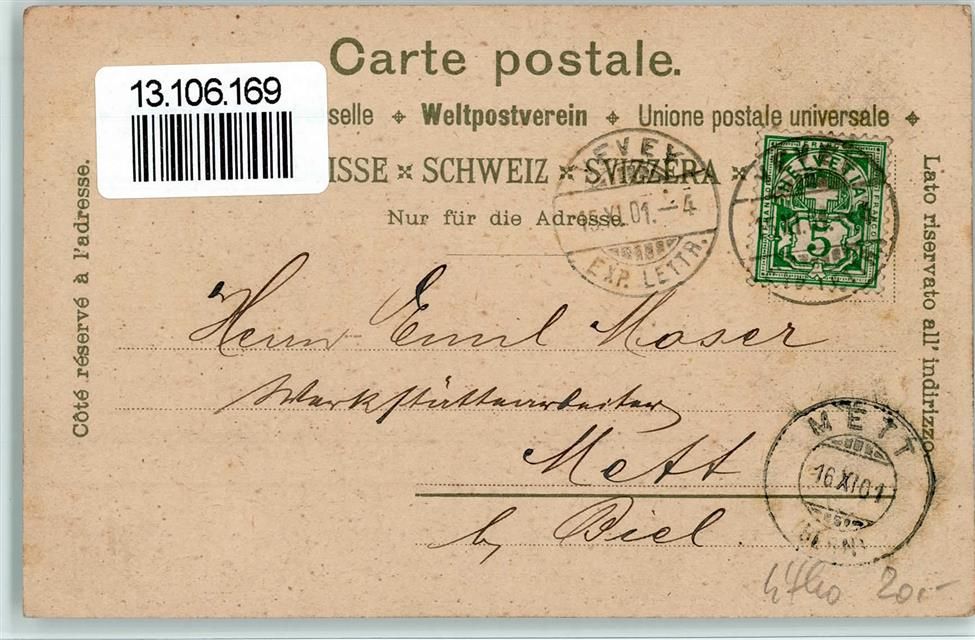 Carte postale.
13.106.169
selle ⌖ Weltpostverein ⌖ Unione postale universale ⌖
ISSE × SCHWEIZ × SVIZZERA ×
Nur für die Adresse.
Côté réservé à l'adresse.
Lato riservato all' indirizzo.
VEVEY
15.XI.01.–4
EXP. LETTR.
HELVETIA
5
Herrn Emil Moser
Werkstättearbeiter
Mett
b/ Biel.
METT
16.XI.01
(BERN)
20.-